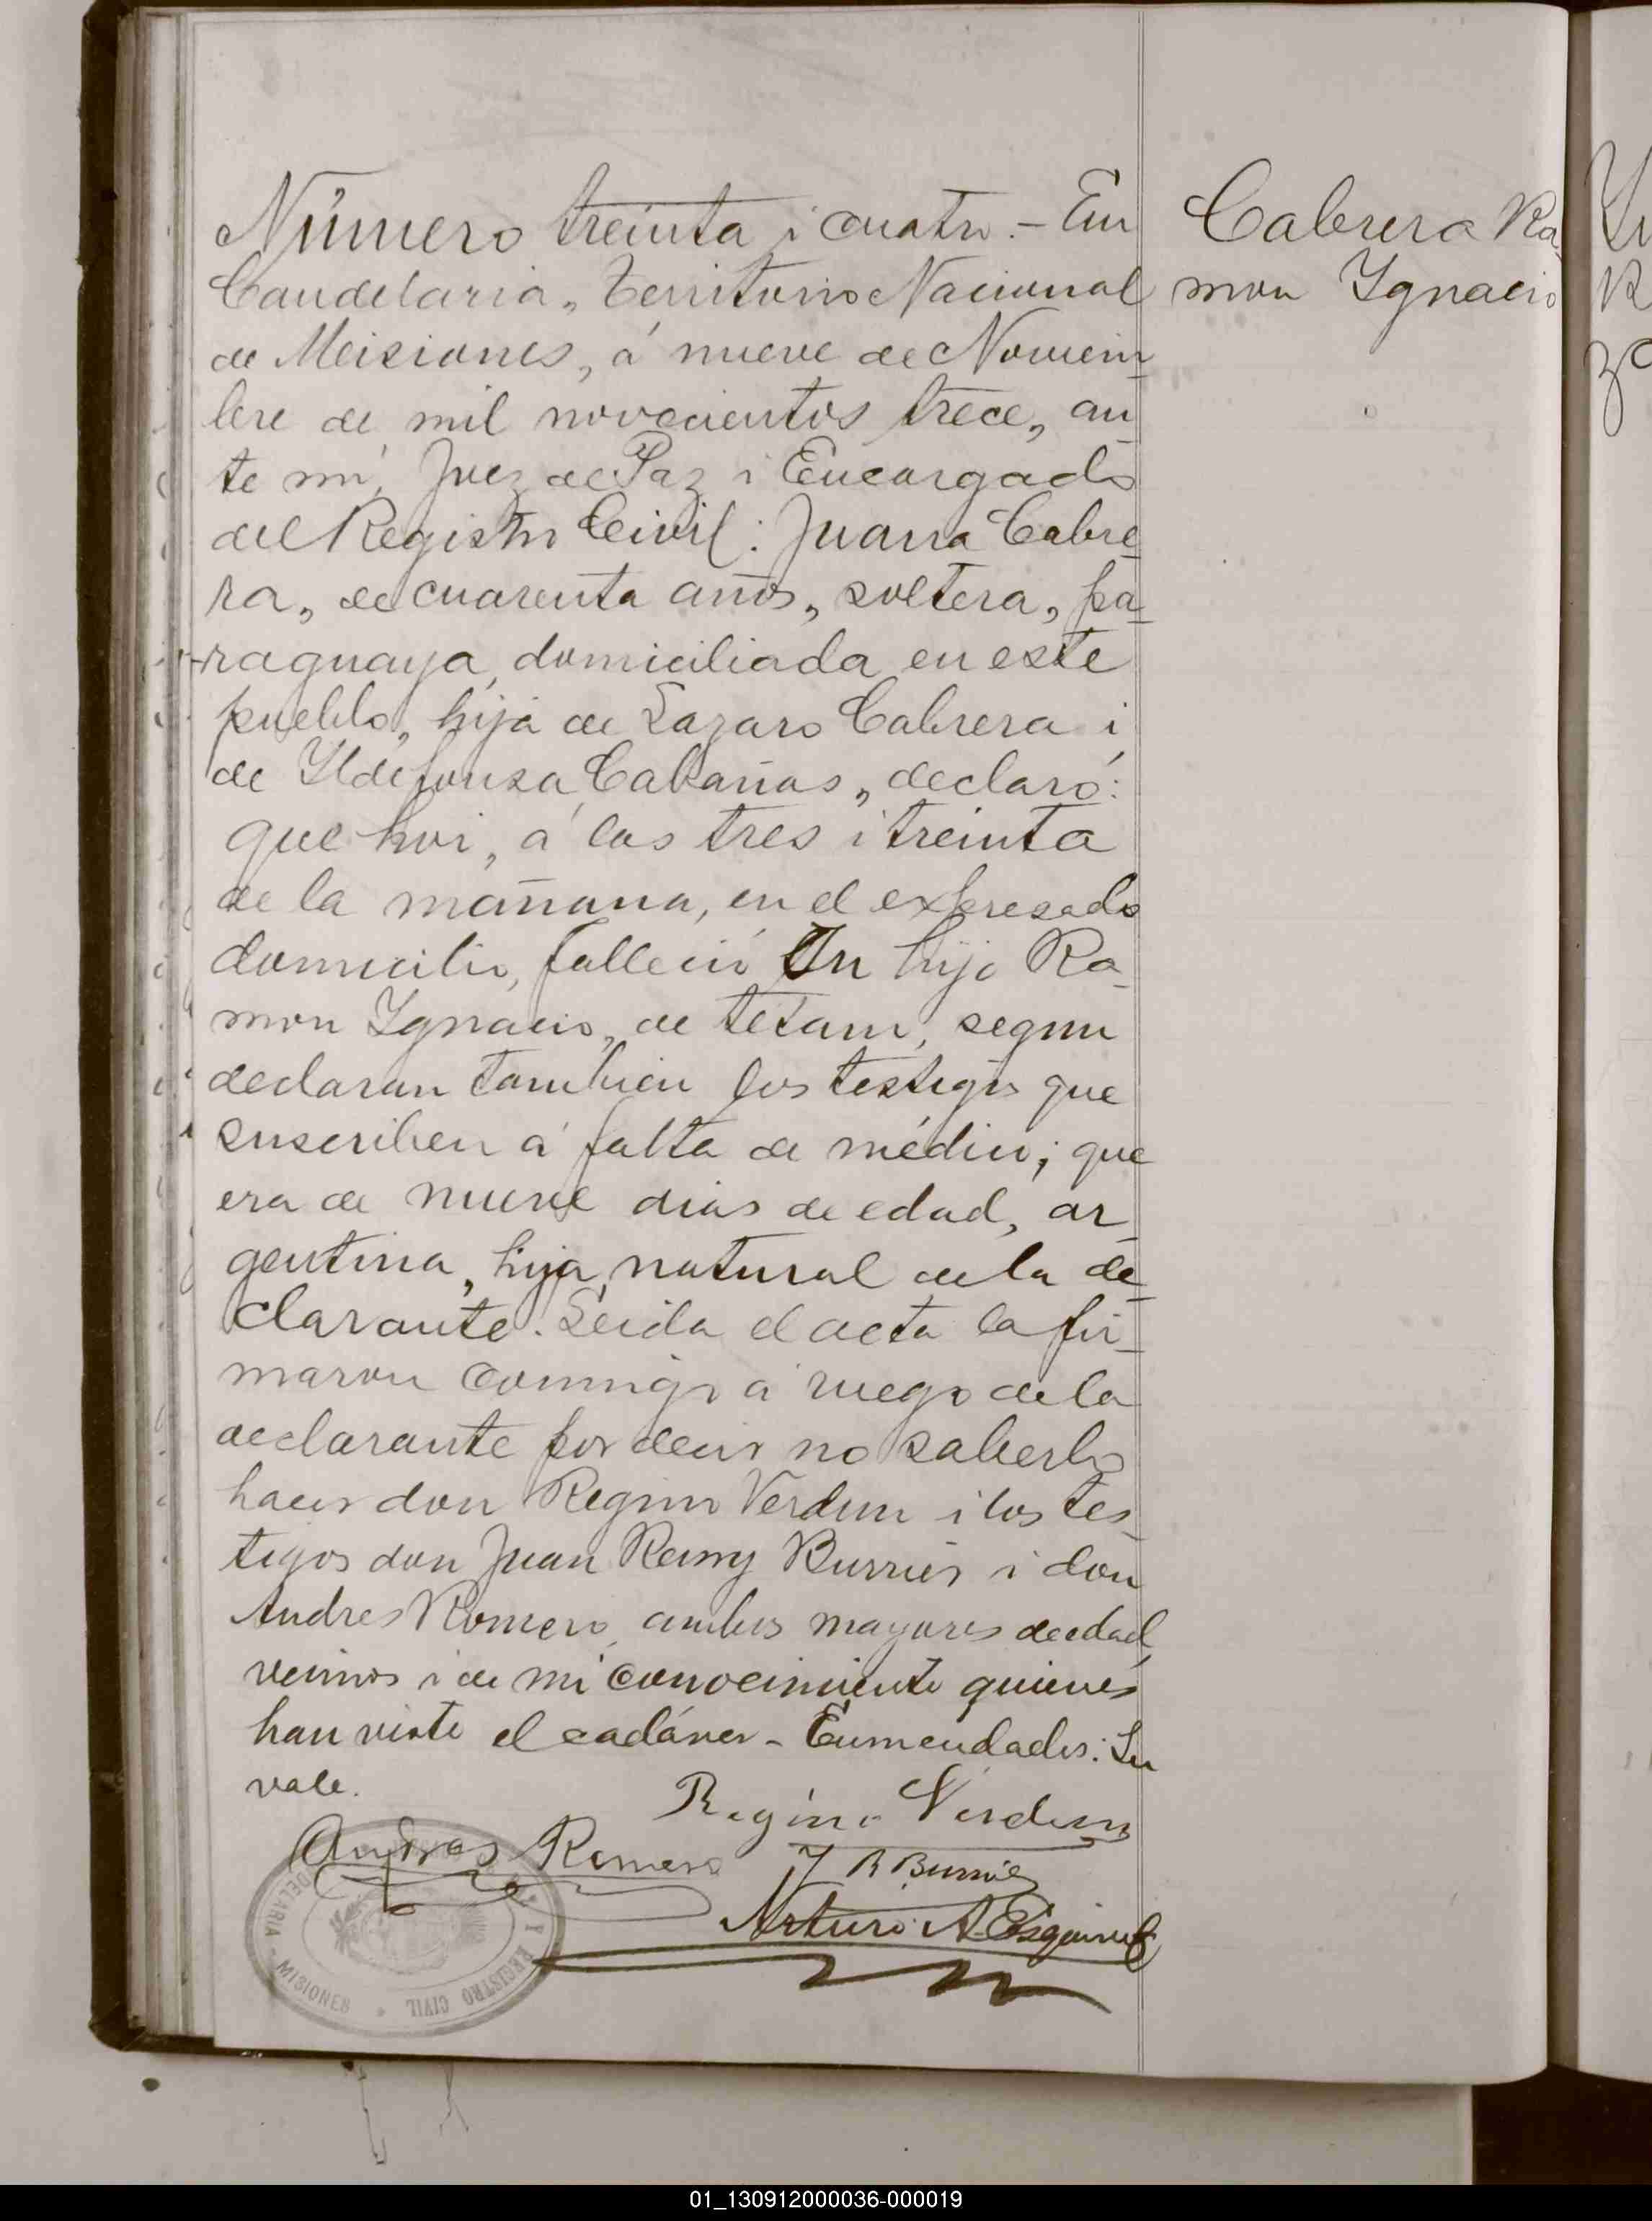 Número treinta i cuatro.- En
Candelaria, Territorio Nacional
de Misiones, á nueve de Noviem-
bre de mil novecientos trece, an-
te mi, Juez de Paz i Encargado
del Registro Civil: Juana Cabre-
ra, de cuarenta años, soltera, pa-
raguaya, domiciliada en este
pueblo, hija de Lazaro Cabrera i
de Ildefonsa Cabañas, declaró:
que hoi, á las tres i treinta
de la mañana, en el expresado
domicilio, falleció Su hijo Ra-
mon Ygnacio, de tetano, segun
declaran tambien los testigos que
suscriben á falta de médico; que
era de nueve dias de edad, ar-
gentina, hija natural de la de-
clarante. Leida el acta la fir-
maron conmigo á ruego de la
declarante por decir no saberlo
hacer don Regino Verdun i los tes-
tigos don Juan Remy Burrier i don
Andres Romero, ambos mayores de edad,
vecinos i de mi conocimiento quienes
han visto el cadáver - Enmendados: Su
vale.
Regino Verdun
Andres Romero
J R Burrier
Arturo A. Esquivel
Cabrera Ra-
mon Ygnacio
DELARIA - MISIONES * REGISTRO CIVIL
01_130912000036-000019